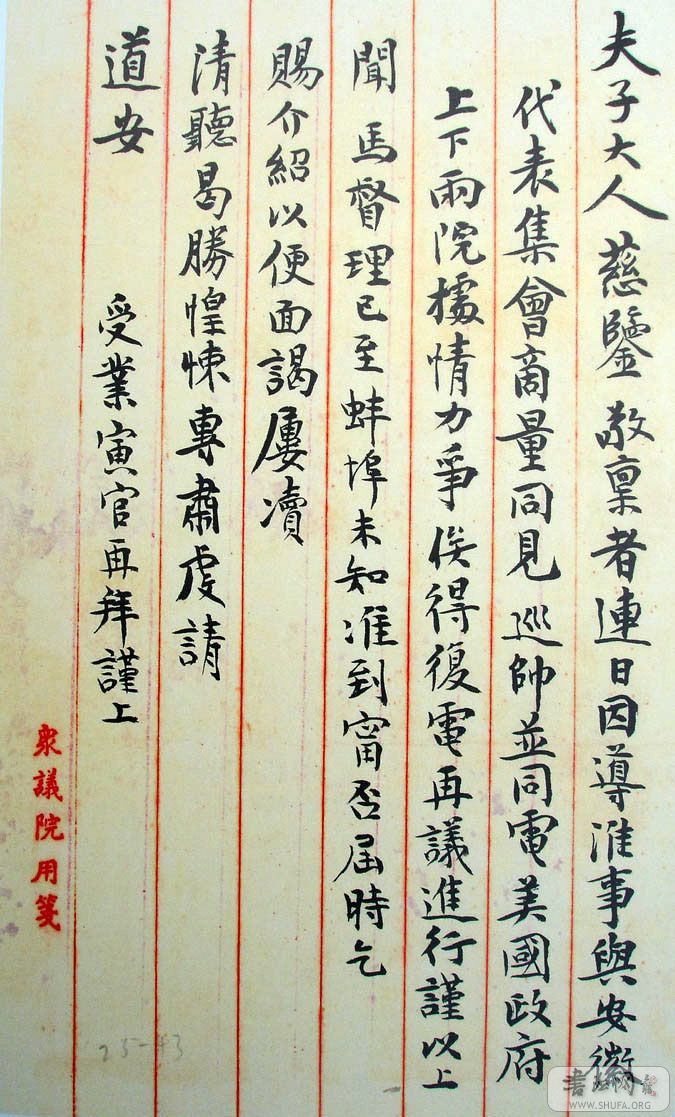 夫子大人慈鑒敬稟者連日因導淮事與安徽
代表集會商量同見巡帥並同電美國政府
上下兩院據情力爭俟得復電再議進行謹以上
聞馬督理已至蚌埠未知准到甯否屆時乞
賜介紹以便面謁屢瀆
清聽曷勝惶悚專肅虔請
道安
受業寅官再拜謹上
眾議院用箋
25-43
書法網
WWW.SHUFA.ORG